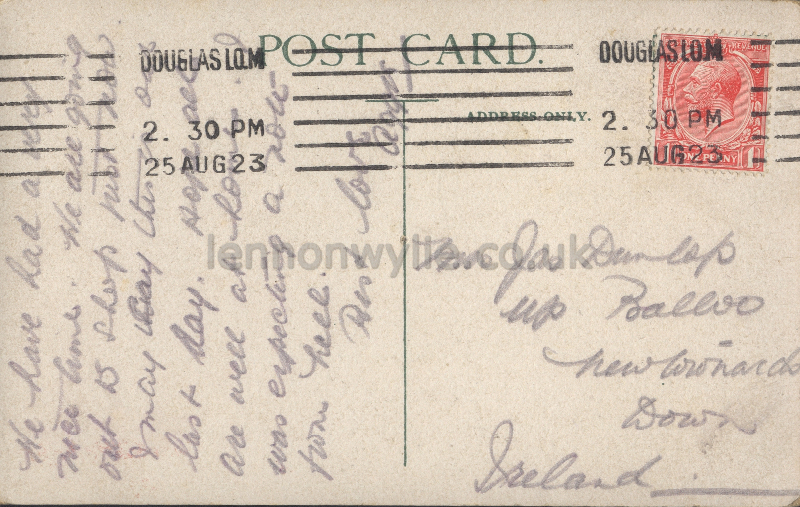 POST CARD.
ADDRESS ONLY.
DOUGLAS I.O.M
2. 30 PM
25 AUG 23
DOUGLAS I.O.M
2. 30 PM
25 AUG 23
REVENUE
ONE PENNY
We have had a very
nice time. We are going
out to shop just now
this our
last day. Hope all
are well at home. I
was expecting a note
from Nell.
Best love
Mrs Jas Dunlop
up Balloo
Newtownards
Down
Ireland
lennonwylie.co.uk